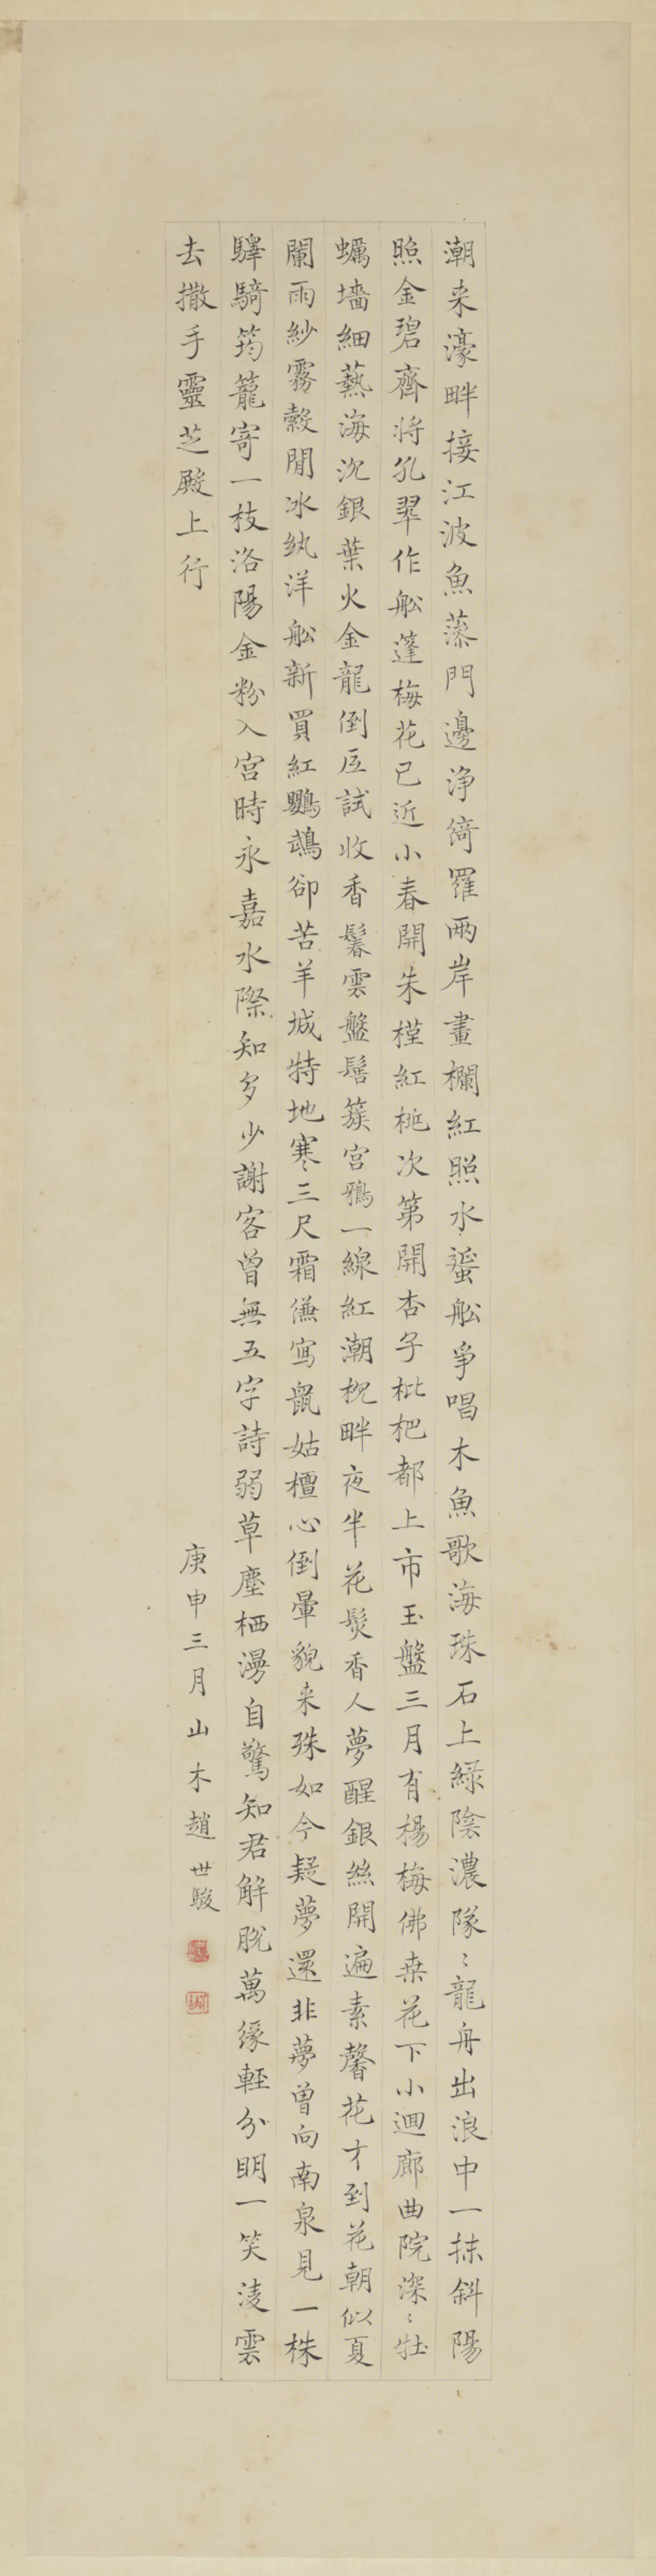 潮来濠畔接江波魚藻門邊淨綺羅兩岸畫欄紅照水蜑船爭唱木魚歌海珠石上綠陰濃隊〻龍舟出浪中一抹斜陽
照金碧齊將孔翠作船蓬梅花已近小春開朱槿紅桃次第開杏子枇杷都上市玉盤三月有楊梅佛桑花下小迴廊曲院深〻牡
蠣墻細爇海沉銀葉火金龍倒匝試收香鬈雲盤髻簇宮鴉一線紅潮枕畔夜半花鬚香人夢醒銀絲開遍素馨花才到花朝似夏
闌雨紗霧縠間冰紈洋船新買紅鸚鵡卻苦羊城特地寒三尺霜縑寫鼠姑檀心倒暈貌来殊如今疑夢還非夢曾向南泉見一株
驛騎筠籠寄一枝洛陽金粉入宮時永嘉水際知多少謝客曾無五字詩弱草塵栖漫自驚知君解脫萬緣輕分明一笑淩雲
去撒手靈芝殿上行
庚申三月山木趙世駿